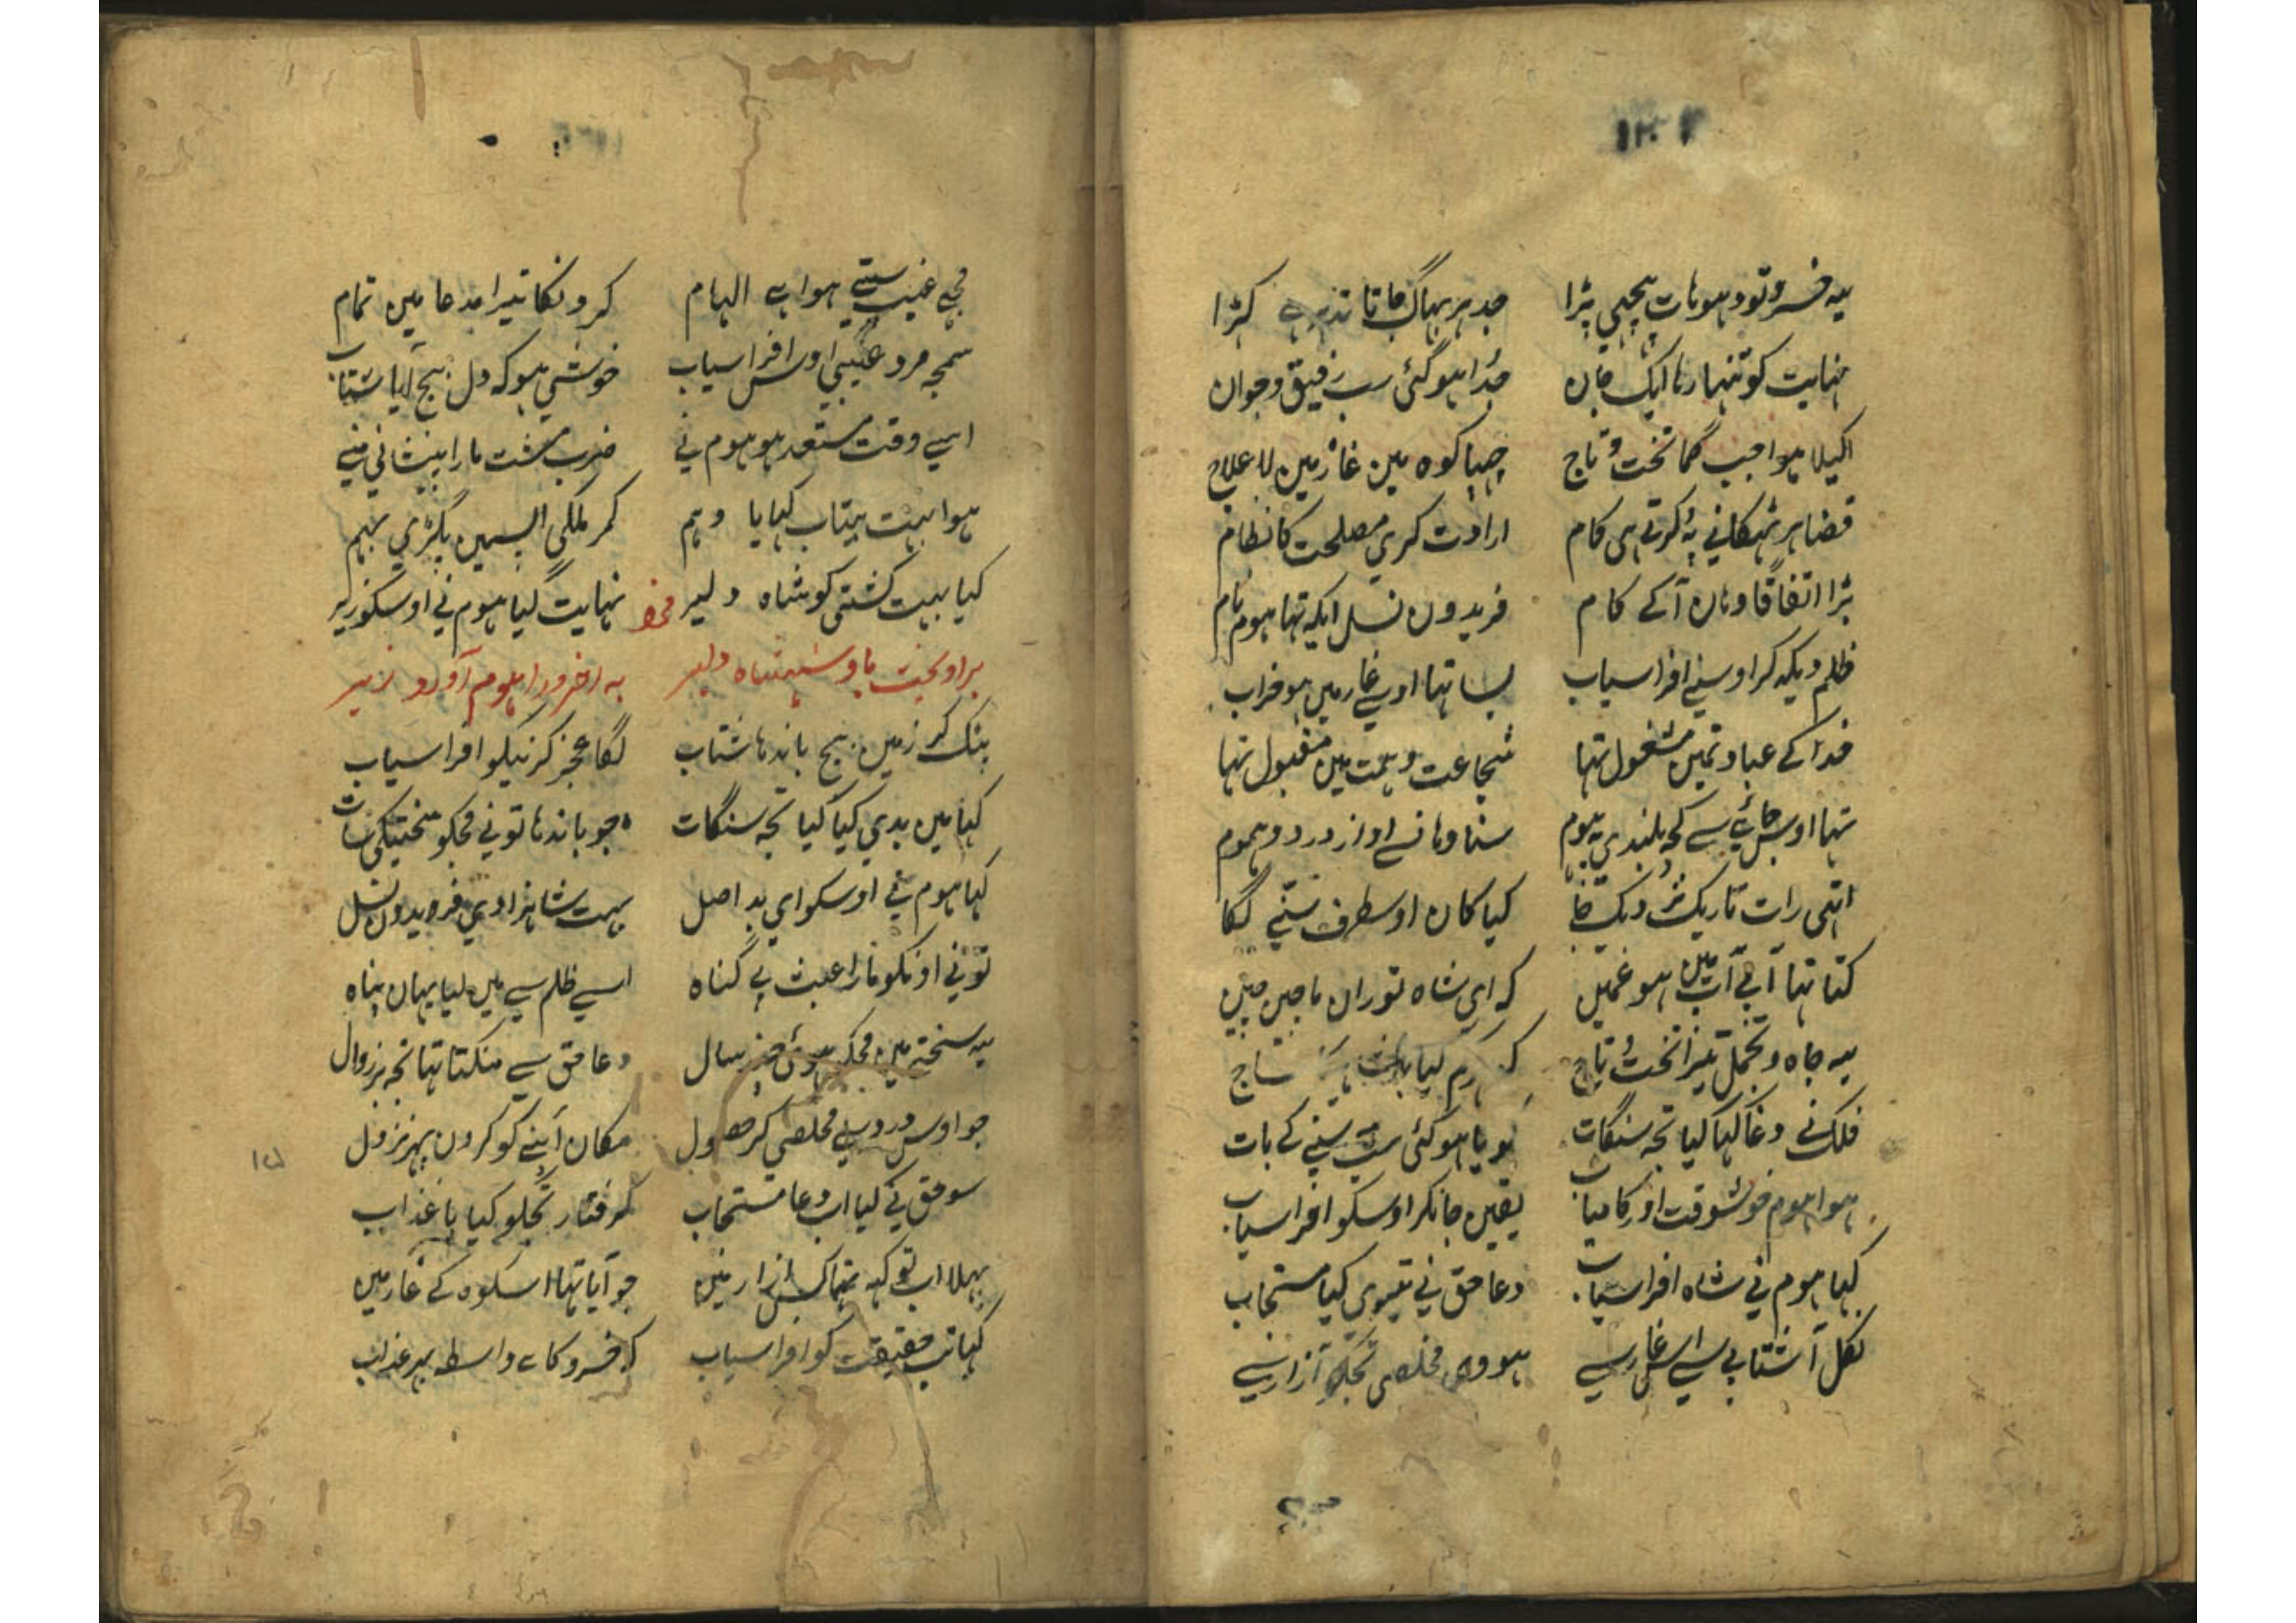 یہ خسرو تو دہو ہات پیچھی پڑا جدہر بہاگ جاتا تدہر ہے کہڑا
نہایت کو تنہا رہا ایک جان جدا ہو گئی سب رفیق و جوان
اکیلا ہوا جب گما تخت و تاج چہپا کوہ مین غار مین لا علاج
قضا ہر ٹہکانے پہ کرتی ہی کام ارادت کری مصلحت کا نظام
پڑا اتفاقا وہان آ کے کام فریدون نسل ایک تہا ہوم نام
ظلم دیکہ کر اوسنے افراسیاب بسا تہا اوسے غار مین ہو خراب
خدا کے عبادتمین مشغول تہا شجاعت و ہمت مین مقبول تہا
تہا اوس جائے سے کچہ بلندی پہ ہوم سنا وہانسے اواز درد و ہموم
اتہی رات تاریک نزدیک جا کیا کان اوسطرف سننے لگا
کتا تہا آپے آپ مین ہو غمین کہ ای شاہ توران ماچین چین
یہ جاہ و تجمل تیرا تخت و تاج
فلک نے دغا کیا کیا تجہ سنگات ہو گئی سب سنے کے بات
ہوا ہوم خوشوقت اور کامیاب یقین جانکر اوسکو افراسیاب
کہا ہوم نی شاہ افراسیاب دعا حق نی تیری کیا مستجاب
نکل آ شتابی سے اس غار سے ہووی مخلصی تجکو آزار سے
مجہے غیب ستے ہوا ہے الہام کرونگا تیرا مدعا مین تمام
سمجہ مرد غیبی اوس افراسیاب خوشی ہو کہ دل بیچ آیا شتاب
اسے وقت مستعد ہو ہوم نے ضرب مشت مارا پیشانی منے
ہوا بہت بیتاب کہایا وہم کمر ملکی البسمین پکڑی بہم
کیا بہت کشتی کو شاہ دلیر نہایت لیا ہوم نی اوسکو زیر
بر اویخت با و شہنشاہ دلیر به اخر ورا هوم آورد زیر
پٹک کر زمین بیچ باندہا شتاب لگا عجز کرنیکو افراسیاب
کہا مین بدی کیا کیا تجہ سنگات جو باندہا تونی مجکو سختیکی سات
کہا ہوم نے اوسکو ای بد اصل بہت شاہزادی فریدون نسل
تونی اونکو مارا عبث بے گناہ اسے ظلم سے مین لیا یہان پناہ
یہ سختے مین مجکو ہوئی چند سال دعا حق سے منگتا تہا تجہ پر زوال
جو اوس درد سے مخلصی کر حصول مکان آپنے کو کرون پہر نزول
سو حق نے کیا اب دعا مستجاب گرفتار تجکو کیا با عذاب
بہلا اب تو کہ تہا کس ازار مین جو آیا تہا اسکوہ کے غار مین
کہا تب حقیقت کو افراسیاب کہ خسرو کا ہے واسطہ پر عذاب